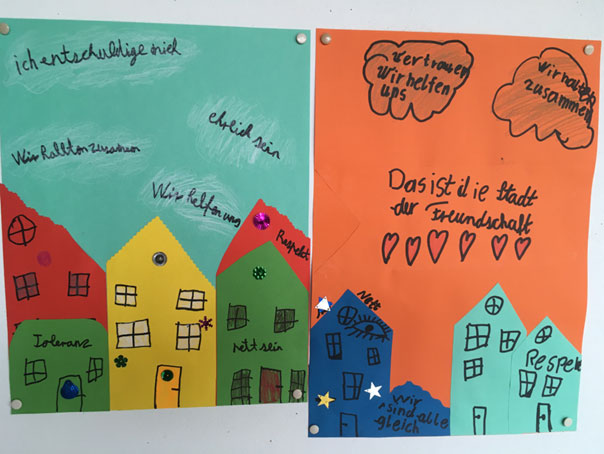 ich entschuldige mich
ehrlich sein
Wir hallten zusamen
Wir helfen uns
Respekt
Toleranz
nett sein
Vertrauen
wir helfen
uns
Wir halten
zusammen
Das ist die Stadt
der Freundschaft
Nett
Wir
sind alle
gleich
Respekt